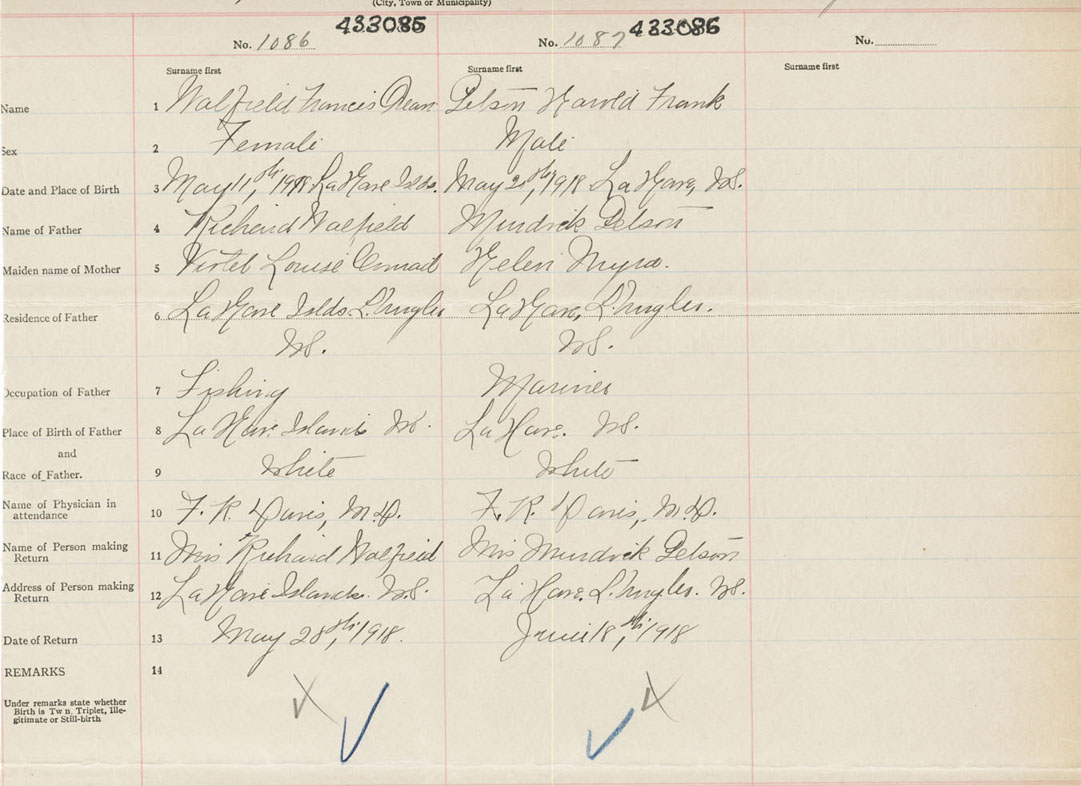 (City, Town or Municipality)
433085 433086
No. 1086 No. 1087 No.
Surname first Surname first Surname first
Name 1 Walfield Francis Pelson Harold Frank
Sex 2 Female Male
Date and Place of Birth 3 May 11th, 1918 LaHave Islds. May 1918 LaHave, NS.
Name of Father 4 Richard Walfield Murdick Pelson
Maiden name of Mother 5 Violet Louise Conrad Helen Myra.
Residence of Father 6 LaHave Islds LaHave,
NS. NS.
Occupation of Father 7 Fishing Mariner
Place of Birth of Father 8 LaHave Islands NS. LaHave. NS.
and
Race of Father. 9 White White
Name of Physician in
attendance 10 F. R. Davis, M.D. F. R. Davis, M.D.
Name of Person making
Return 11 Mrs Richard Walfield Mrs Murdick Pelson
Address of Person making
Return 12 LaHave Islands. NS. LaHave. NS.
Date of Return 13 May 28th, 1918. June 18th, 1918
REMARKS 14
Under remarks state whether
Birth is Tw n, Triplet, Ille-
gitimate or Still-birth